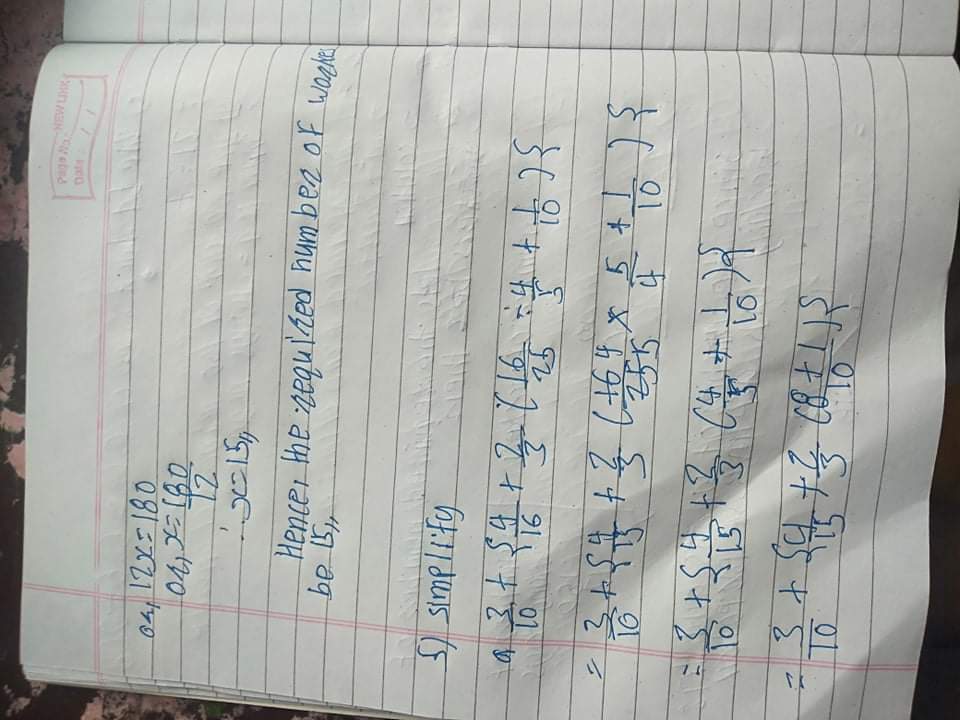 Page No.: NEW LINK
Date / /
or, 12x=180
or, x=180/12
∴ x=15,,
Hence, the required number of worker
be 15,,
5) simplify
a 3/10 + {4/16 + 2/3 (16/25 ÷ 4/5 + 1/10)}
= 3/10 + {4/15 + 2/3 (16 4/25 5 × 5/4 + 1/10)}
= 3/10 + {4/15 + 2/3 (4/5 + 1/10)}
= 3/10 + {4/15 + 2/3 (8+1/10)}